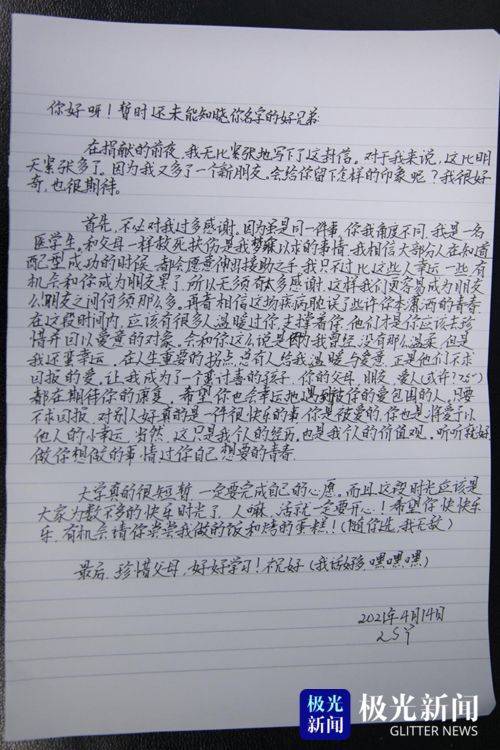 你好呀！暂时还未能知晓你名字的好兄弟
在捐献的前夜，我无比紧张地写下了这封信。对于我来说，这比明
天紧张多了。因为我又多了一个新朋友，会给你留下怎样的印象呢？我很好
奇，也很期待。
首先，不必对我过多感谢。因为虽是同一件事，你我角度不同。我是一名
医学生。和父母一样救死扶伤是我梦寐以求的事情。我相信大部分人在知道
配型成功的时候，都会愿意伸出援助之手。我只不过比这些人幸运一些，有
机会和你成为朋友罢了，所以无须有太多感谢，这样我们更容易成为朋友
么！朋友之间何须那么多，再者相信这场疾病脱误了些许你本潇洒的青春
在这段时间内，应该有很多人温暖过你，支撑着你，他们才是你应该去珍
惜并回以爱意的对象。会和你这么说是因为我曾经没有那么温柔，但是
我还算幸运。在人生重要的拐点，总有人给我温暖与爱意，正是他们不求
回报的爱，让我成为了一个更讨喜的孩子。你的父母，朋友，爱人（或许？）
都在期待你的康复，希望你也会幸运地遇到被你的爱包围的人。只要
不求回报，对别人好真的是一件很快乐的事。你是被爱的，你也是将爱予以
他人的小幸运。当然，这只是我个人的经历，也是我个人的价值观。听听就好
做你想做的事情，过你自己想要的青春
大学真的很短暂，一定要完成自己的心愿。而且这段时光应该是
大家为数不多的快乐时光了，人嘛，活就一定要开心！希望你快快乐
乐，有机会请你尝尝我做的饭和烤的蛋糕！！（随你选，我无敌）
最后，珍惜父母，好好学习！祝好（我话好多，嘿嘿嘿）
2021年4月14日
极光
新闻
极光新闻
GLITTER NEWS